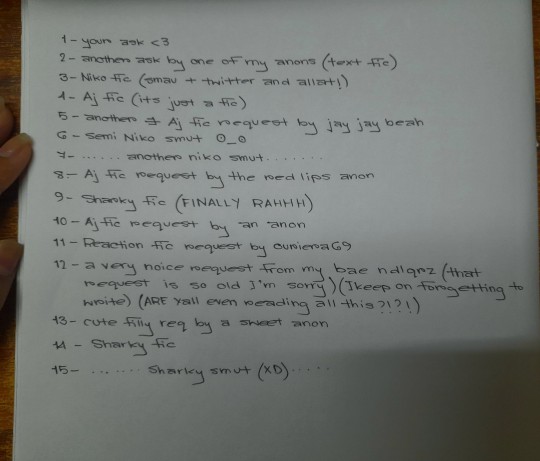 1 - your ask <3
2 - another ask by one of my anons (text fic)
3 - Niko fic (smau + twitter and allat!)
4 - Aj fic (its just a fic)
5 - another Aj fic request by jay jay beah
6 - semi Niko smut 0_0
7 - ...... another niko smut.......
8 - Aj fic request by the red lips anon
9 - Sharky fic (FINALLY RAHHH)
10 - Aj fic request by an anon
11 - Reaction fic request by
12 - a very noice request from my bae (that
request is so old I'm sorry) (I keep on forgetting to
write) (ARE yall even reading all this ?!?!)
13 - cute filly req by a sweet anon
14 - Sharky fic
15 - ....... Sharky smut (XD).....